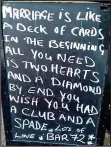 MARRIAGE IS LIKE
A DECK OF CARDS
IN THE BEGINNING
ALL YOU NEED
IS TWO HEARTS
AND A DIAMOND
BY END YOU
WISH YOU HAD
A CLUB AND A
SPADE. LOTS OF
LOVE BAR 72 *